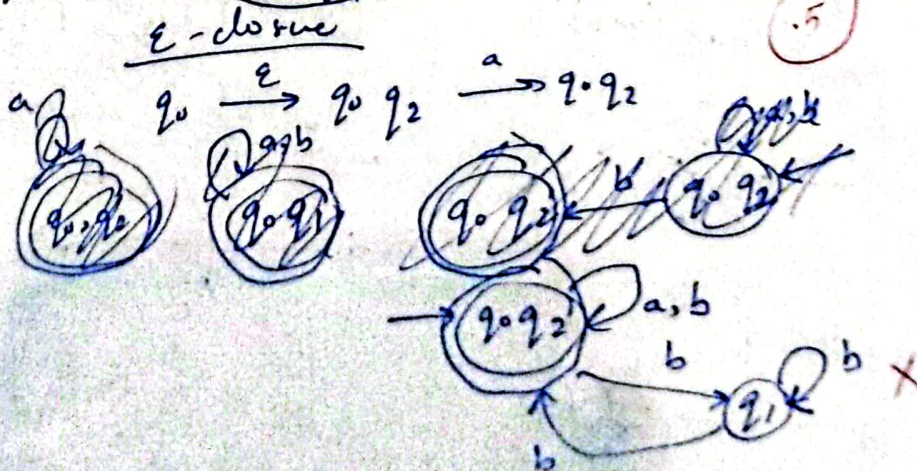 ε-closue
.5
q₀ —ε→ q₀ q₂ —a→ q₀ q₂
a
a,b
q₀ q₁
q₀ q₂
b
q₀ q₂
q₀ q₂
a,b
b
q₁
b
b